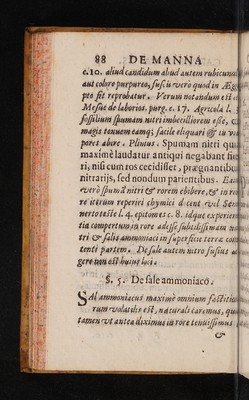 88 DE MANNA
c.10. aliud candidum aliud autem rubicundū
aut colore purpureo, fuscū verò quod in Æg
pto sit reprobatur. Verum notandum est
Mesue de laborios. purg. c. 17. Agricola l.
fossilium spumam nitri imbecilliorem esse,
magis tenuem eamq; facile eliquari & in
porem abire. Plinius. Spumam nitri qu
maximè laudatur antiqui negabant fie
ri, nisi cum ros cecidisset, prægnantibus
nitrarijs, sed nondum parientibus.
verò spumā nitri & rorem ebibere, & in ro
re iterum reperiri chymici docent vel Sen
nerto teste l. 4. epitomes c. 8. idque experien
tia compertum in rore adesse subtilissimam
tri & salis ammoniaci in superficie terræ
tenti partem. De sale autem nitro fusius a
gere non est huius loci.
§. 5. De sale ammoniaco.
SAl ammoniacus maximè omnium factitiu
rum volatilis est, naturali caremus, qua
tamen ut antea diximus in rore tenuissimus
&